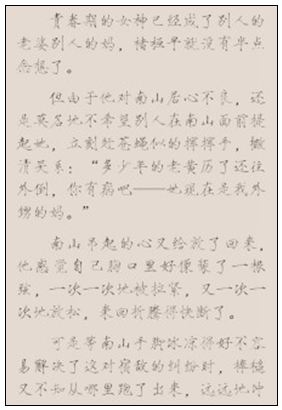 青春期的女神已经成了别人的
老婆别人的妈，褚桓早就没有半点
念想了。
但由于他对南山居心不良，还
是莫名地不希望别人在南山面前提
起她，立刻赶苍蝇似的挥挥手，撇
清关系：“多少年的老黄历了还往
外倒，你有病吧——她现在是我外
甥的妈。”
南山吊起的心又给放了回来，
他感觉自己胸口里好像装了一根
弦，一次一次地被拉紧，又一次一
次地放松，来回折腾得快断了。
可是等南山手脚冰凉得好不容
易解决了这对宿敌的纠纷时，棒槌
又不知从哪里跑了出来，远远地冲